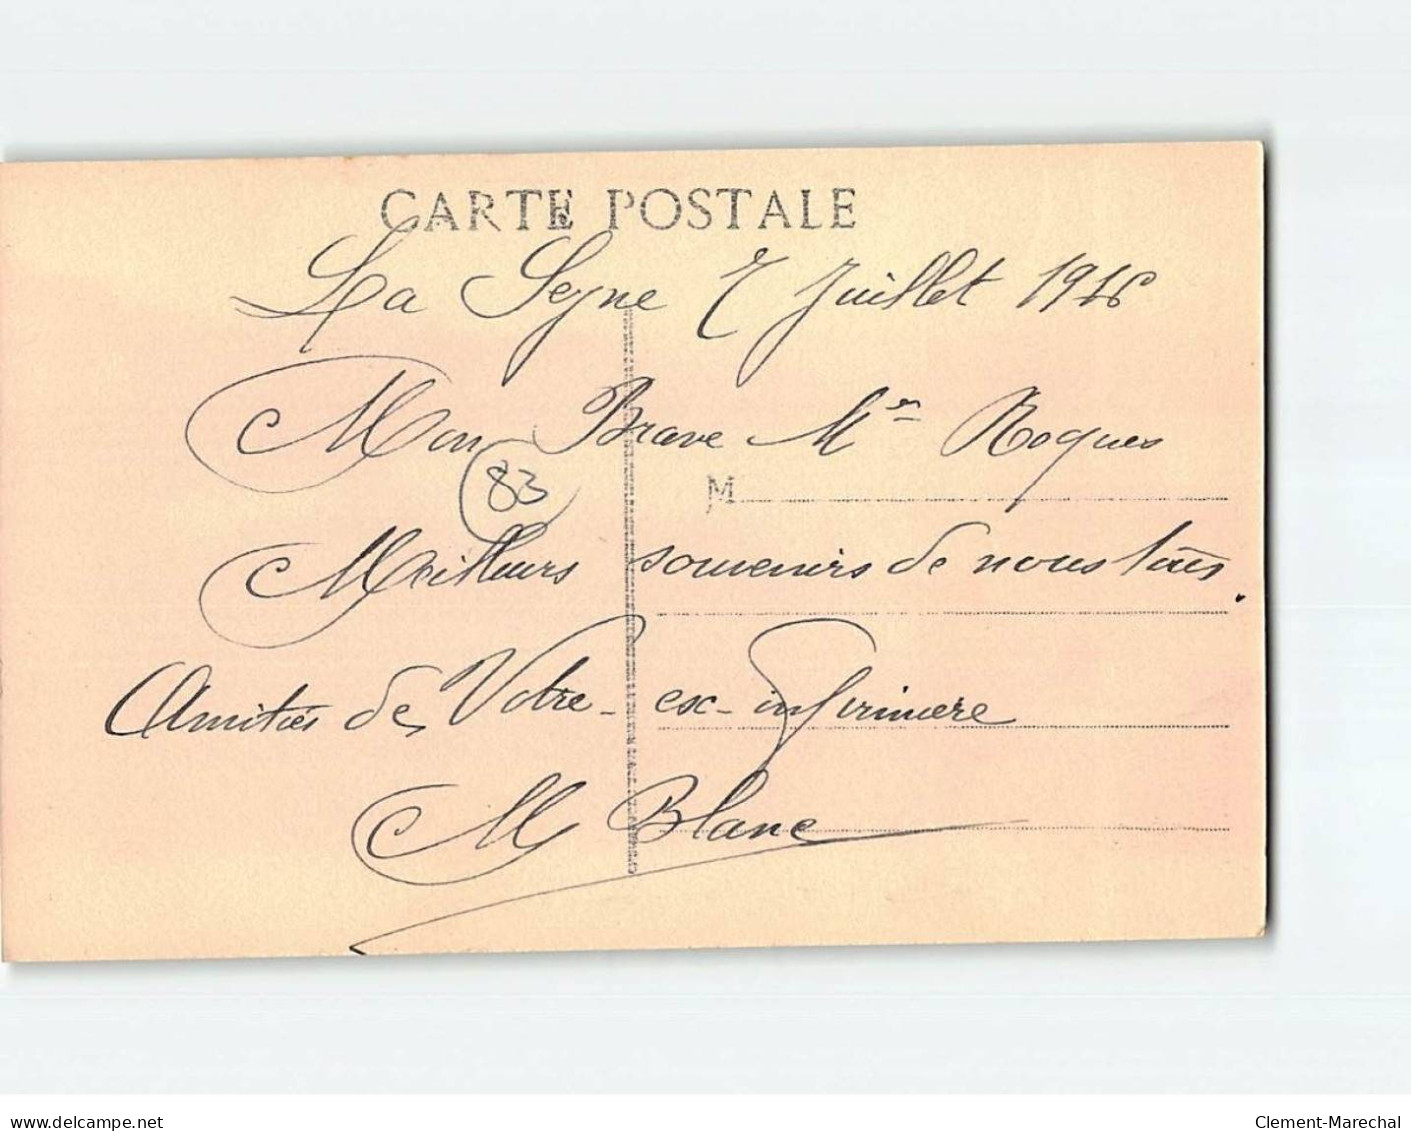 CARTE POSTALE
La Seyne 7 Juillet 1916
Mon Brave Mr Roques
83
M
Meilleurs souvenirs de nous tous.
Amitiés de Votre ex-infirmière
M Blanc
www.delcampe.net
Clement-Marechal